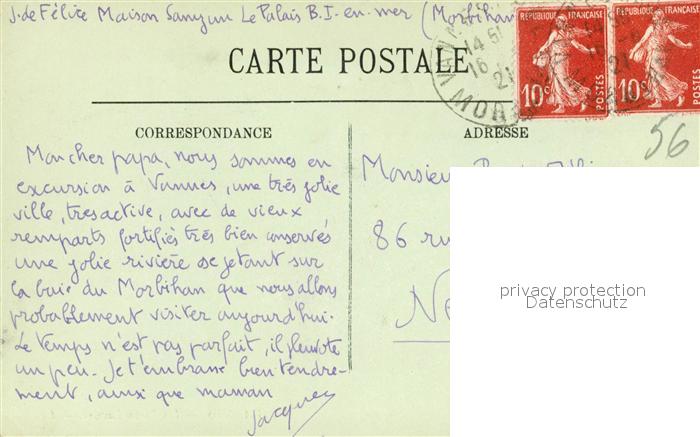 J. de Félice Maison Samzun Le Palais B.I. en-mer (Morbihan
CARTE POSTALE
RÉPUBLIQUE FRANÇAISE
10c POSTES
RÉPUBLIQUE FRANÇAISE
10c POSTES
CORRESPONDANCE
ADRESSE
56
Mon cher papa, nous sommes en
excursion à Vannes, une très jolie
ville, très active, avec de vieux
remparts fortifiés très bien conservés
une jolie rivière se jetant sur
la baie du Morbihan que nous allons
probablement visiter aujourd'hui.
Le temps n'est pas parfait, il pleuvote
un peu. Je t'embrasse bien tendre-
ment, ainsi que maman
Jacques
Monsieur
86 ru
privacy protection
Datenschutz
Ne